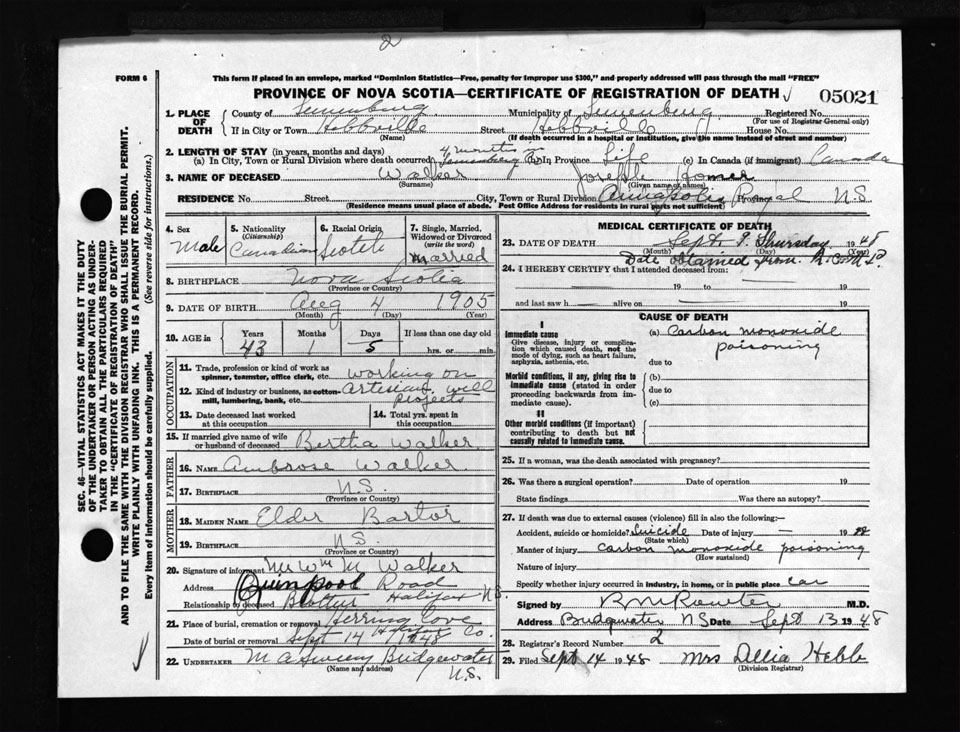 2
FORM 6
This form if placed in an envelope, marked "Dominion Statistics—Free, penalty for improper use $300," and properly addressed will pass through the mail "FREE"
PROVINCE OF NOVA SCOTIA—CERTIFICATE OF REGISTRATION OF DEATH
05021
1. PLACE OF DEATH
County of Lunenburg Municipality of Lunenburg Registered No.
(For use of Registrar General only)
If in City or Town Hebbville Street Hebbville House No.
(Name) (If death occurred in a hospital or institution, give the name instead of street and number)
2. LENGTH OF STAY (in years, months and days)
(a) In City, Town or Rural Division where death occurred 4 months in Lunenburg Co (b) In Province Life (c) In Canada (if immigrant) Canada
3. NAME OF DECEASED Walker Joseph Homer
(Surname) (Given name or names)
RESIDENCE No. Street City, Town or Rural Division Annapolis Royal Province N.S
(Residence means usual place of abode. Post Office Address for residents in rural parts not sufficient)
4. Sex Male
5. Nationality (Citizenship) Canadian
6. Racial Origin Scotch
7. Single, Married, Widowed or Divorced (write the word) Married
8. BIRTHPLACE Nova Scotia
(Province or Country)
9. DATE OF BIRTH Aug 4 1905
(Month) (Day) (Year)
10. AGE in Years 43 Months 1 Days 5 If less than one day old
hrs. or min.
OCCUPATION
11. Trade, profession or kind of work as spinner, teamster, office clerk, etc. working on
12. Kind of industry or business, as cotton-mill, lumbering, bank, etc. Artesian well projects
13. Date deceased last worked at this occupation
14. Total yrs. spent in this occupation
15. If married give name of wife or husband of deceased Bertha Walker
FATHER
16. NAME Ambrose Walker
17. BIRTHPLACE N.S.
(Province or Country)
MOTHER
18. MAIDEN NAME Elder Bartor
19. BIRTHPLACE N.S.
(Province or Country)
20. Signature of informant Mr Wm M Walker
Address Quinpool Road
Relationship to deceased Brother Halifax N.S.
21. Place of burial, cremation or removal Herring Cove
Date of burial or removal Sept 14 Halifax Co. 1948
22. UNDERTAKER M A Sweeny Bridgewater
(Name and address) N.S.
MEDICAL CERTIFICATE OF DEATH
23. DATE OF DEATH Sept. 9. Thursday 1948
(Month) (Day) (Year)
Date obtained from R.C.M.P.
24. I HEREBY CERTIFY that I attended deceased from:
19 to 19
and last saw h alive on 19
CAUSE OF DEATH
I
Immediate cause
Give disease, injury or complication which caused death, not the mode of dying, such as heart failure, asphyxia, asthenia, etc.
(a) Carbon monoxide poisoning
due to
Morbid conditions, if any, giving rise to immediate cause (stated in order proceeding backwards from immediate cause).
(b)
due to
(c)
II
Other morbid conditions (if important) contributing to death but not causally related to immediate cause.
25. If a woman, was the death associated with pregnancy?
26. Was there a surgical operation? Date of operation 19
State findings Was there an autopsy?
27. If death was due to external causes (violence) fill in also the following:—
Accident, suicide or homicide? Suicide Date of injury — 1948
(State which)
Manner of injury Carbon monoxide poisoning
(How sustained)
Nature of injury
Specify whether injury occurred in industry, in home, or in public place car
Signed by M.D.
Address Bridgewater NS Date Sept 13 1948
28. Registrar's Record Number 2
29. Filed Sept 14 1948 Mrs Hebb
(Division Registrar)
SEC. 46—VITAL STATISTICS ACT MAKES IT THE DUTY
OF THE UNDERTAKER OR PERSON ACTING AS UNDER-
TAKER TO OBTAIN ALL THE PARTICULARS REQUIRED
IN THE "CERTIFICATE OF REGISTRATION OF DEATH"
AND TO FILE THE SAME WITH THE DIVISION REGISTRAR WHO SHALL ISSUE THE BURIAL PERMIT.
WRITE PLAINLY WITH UNFADING INK. THIS IS A PERMANENT RECORD.
Every item of information should be carefully supplied. (See reverse side for instructions.)